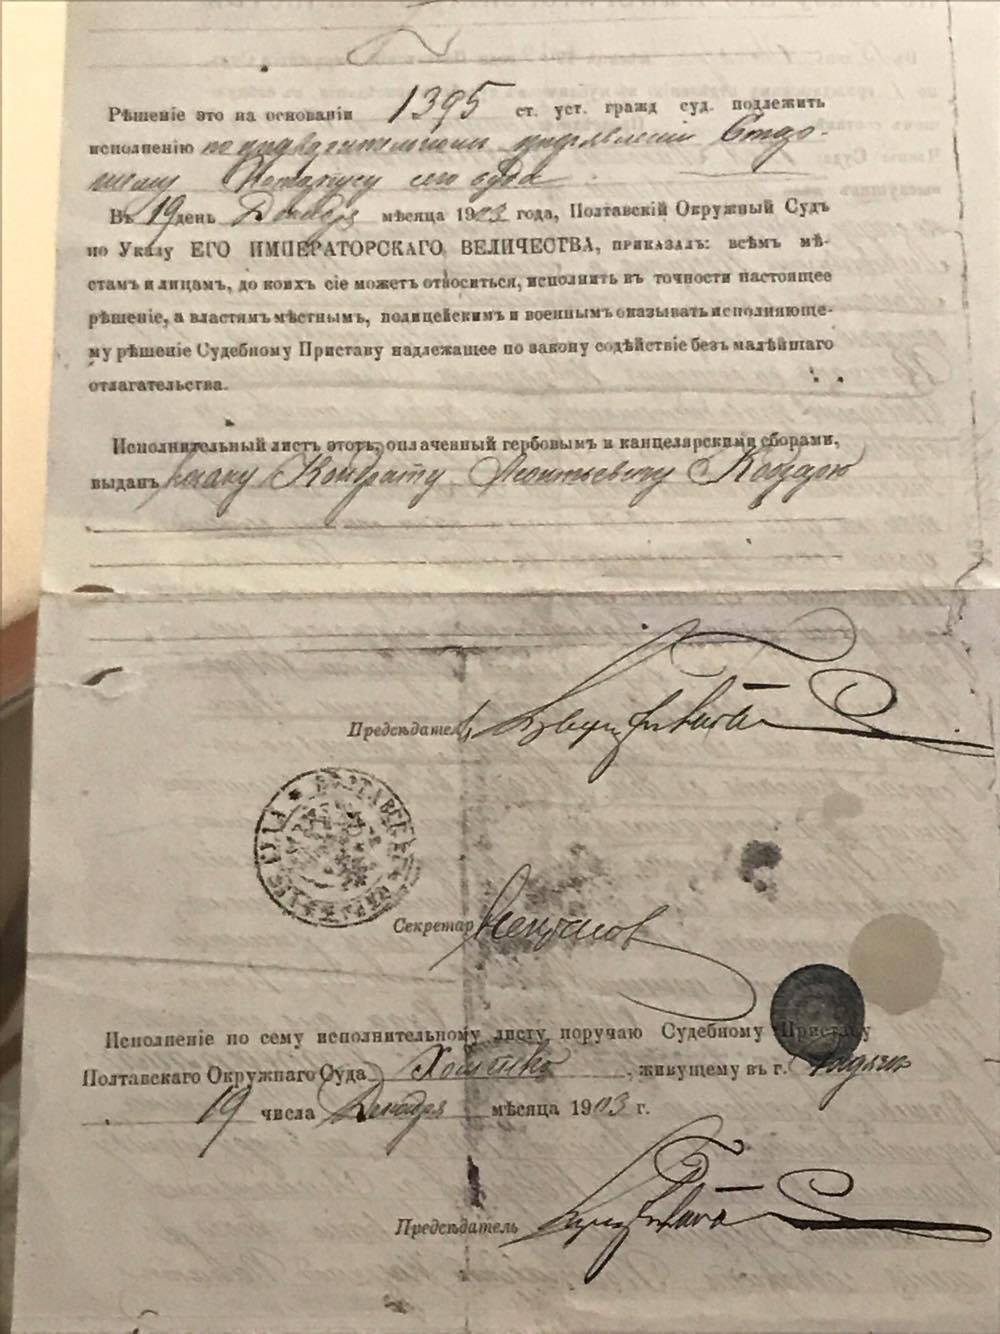 Рѣшеніе это на основаніи 1395 ст. уст. гражд. суд. подлежитъ
исполненію по
сего суда.
Въ 19 день Декабря мѣсяца 1903 года, Полтавскій Окружный Судъ
по Указу ЕГО ИМПЕРАТОРСКАГО ВЕЛИЧЕСТВА, приказалъ: всѣмъ мѣ-
стамъ и лицамъ, до коихъ сіе можетъ относиться, исполнить въ точности настоящее
рѣшеніе, а властямъ мѣстнымъ, полицейскимъ и военнымъ оказывать исполняюще-
му рѣшеніе Судебному Приставу надлежащее по закону содѣйствіе безъ малѣйшаго
отлагательства.
Исполнительный листъ этотъ, оплаченный гербовымъ и канцелярскими сборами,
выданъ Кондрату Леонтьевичу
Предсѣдатель
Секретарь
Исполненіе по сему исполнительному листу поручаю Судебному Приставу
Полтавскаго Окружнаго Суда , живущему въ г. Гадячѣ
19 числа Декабря мѣсяца 1903 г.
Предсѣдатель